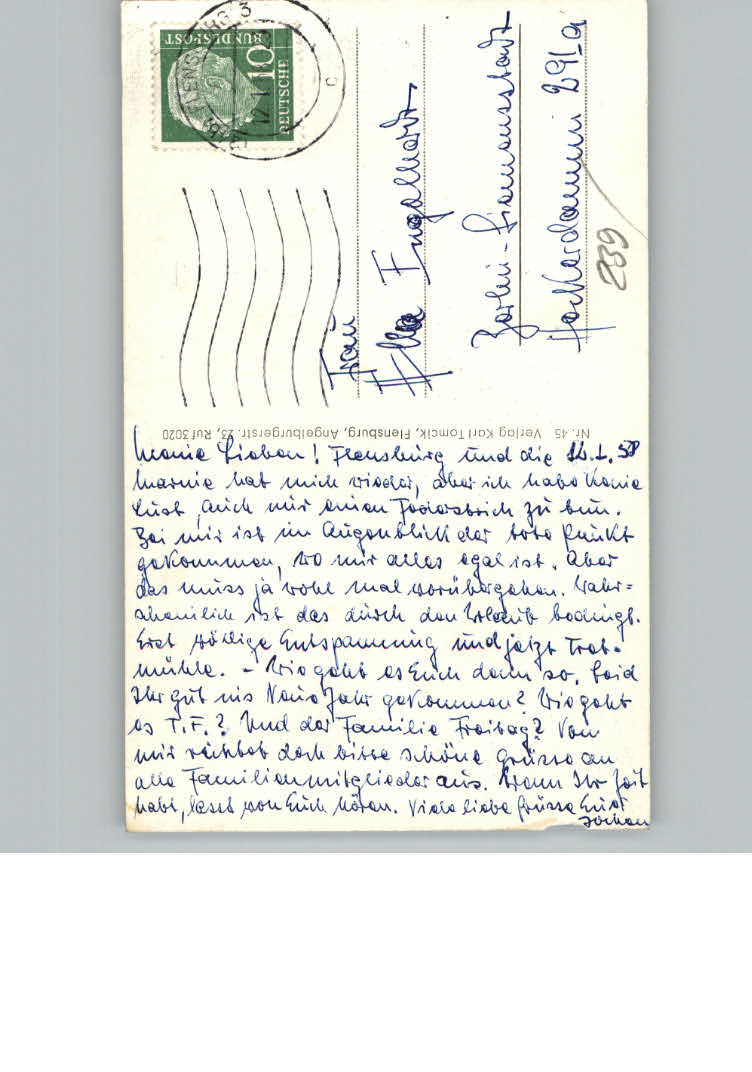 Meine Lieben! Flensburg und die 12.1.58
Marine hat mich wieder, aber ich habe keine
Lust, auch nur einen Federstrich zu tun.
Bei mir ist im Augenblick der tote Punkt
gekommen, wo mir alles egal ist. Aber
das muss ja wohl mal vorübergehen. Wahr=
scheinlich ist das durch den Urlaub bedingt.
Erst völlige Entspannung und jetzt Tret-
mühle. - Wie geht es Euch denn so. Seid
Ihr gut ins Neue Jahr gekommen? Wie geht
es T.F.? Und der Familie Freitag? Von
mir richtet doch bitte schöne Grüsse an
alle Familienmitglieder aus. Wenn Ihr Zeit
habt, lasst von Euch hören. Viele liebe Grüsse Euer
Jochen
Nr. 45 Verlag Karl Tomcik, Flensburg, Angelburgerstr. 23, Ruf 3020
Frau
Ella Engelhardt
Berlin-Siemensstadt
Heckerdamm 291a
239
DEUTSCHE
BUNDESPOST
10
FLENSBURG 3
12.1.
c